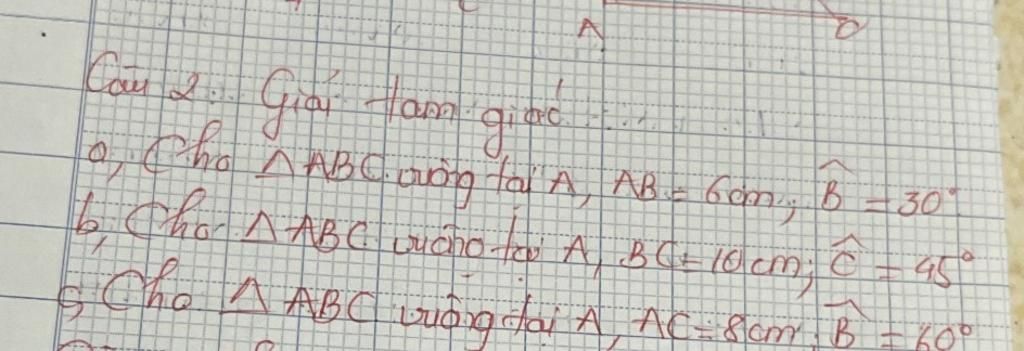 A
Câu 2: Giải tam giác
a, Cho △ABC vuông tại A, AB = 6cm; B̂ = 30°
b, Cho △ABC vuông tại A, BC = 10cm; Ĉ = 45°
c, Cho △ABC vuông tại A, AC = 8cm, B̂ = 60°